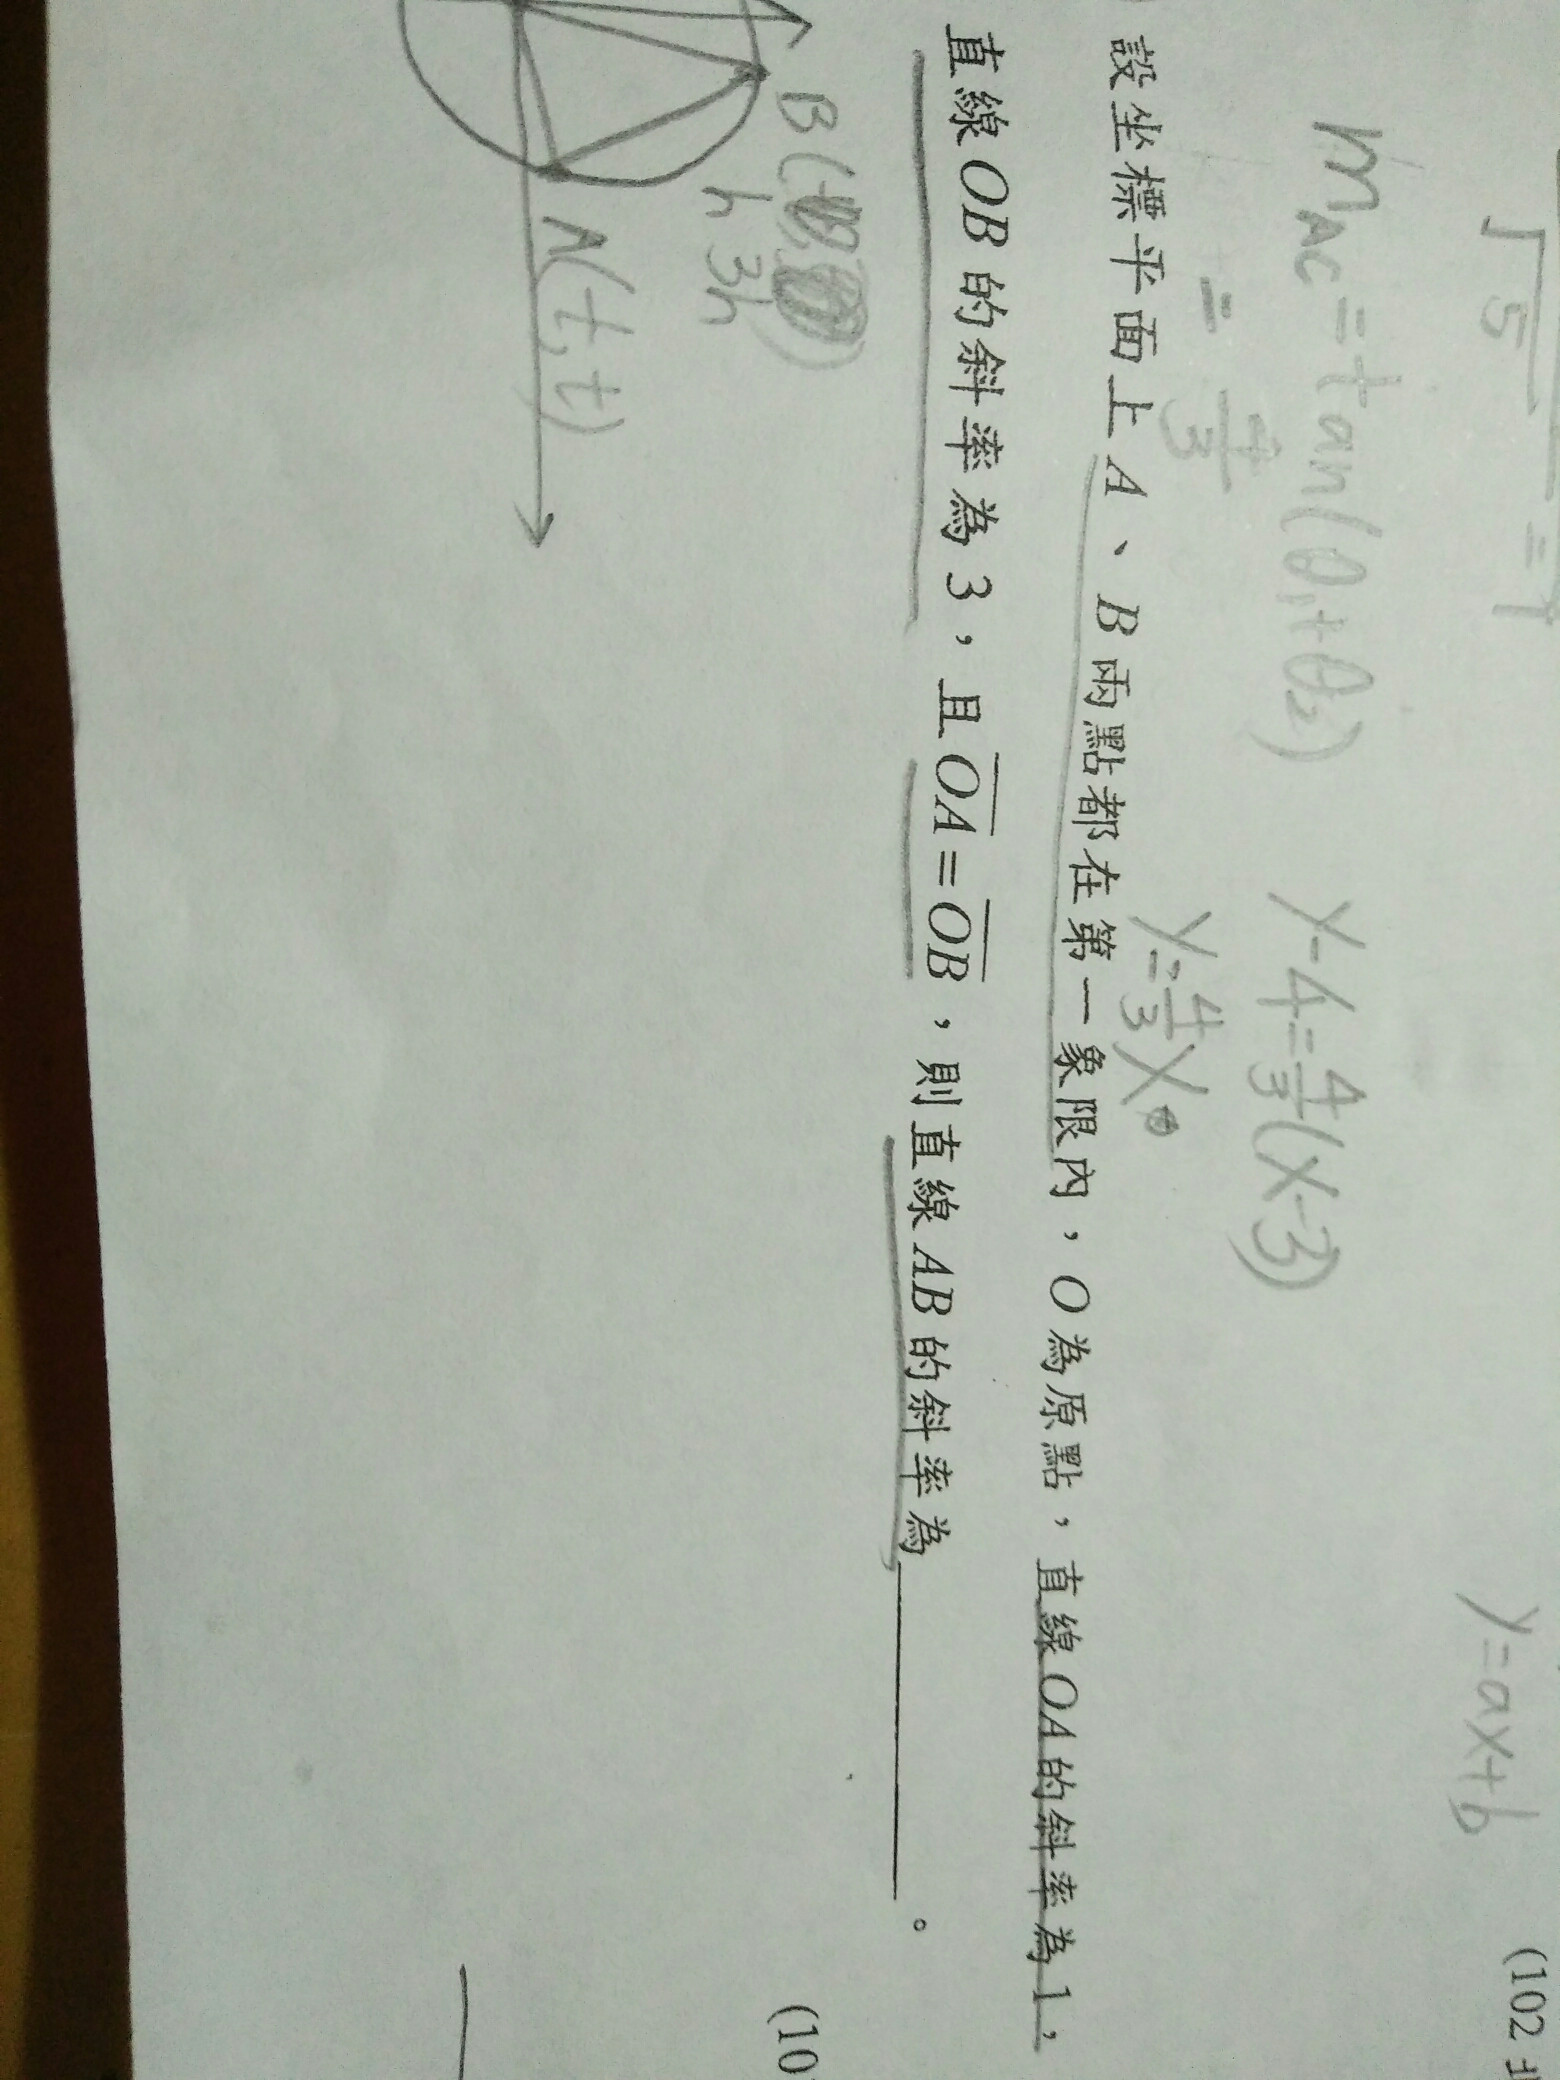 √5 = 1
y=ax+b
(102 北
m_AC = tan(θ₁+θ₂)
y-4=4/3(x-3)
= 4/3
y=4/3x
設坐標平面上 A、B 兩點都在第一象限內，O 為原點，直線 OA 的斜率為 1，
直線 OB 的斜率為 3，且 OA=OB，則直線 AB 的斜率為________。
(10
B(
h 3h)
A(t,t)